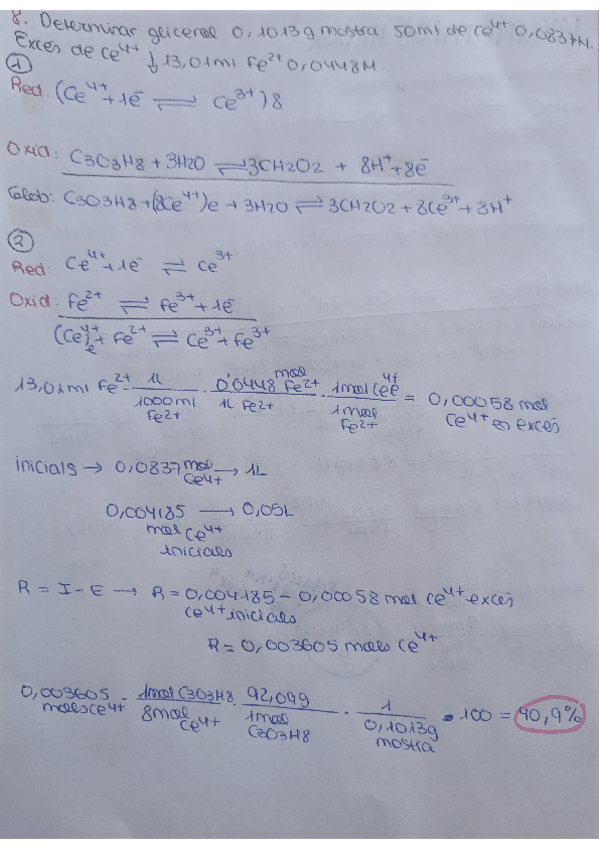 8. Determinar glicerol 0,1013g mostra 50ml de Ce4+ 0,0837M.
Excés de Ce4+ ↓ 13,01ml Fe2+ 0,0448M.
①
Red: (Ce4+ + 1e- ⇌ Ce3+)8
Oxid: C3O3H8 + 3H2O ⇌ 3CH2O2 + 8H+ + 8e-
Glob: C3O3H8 + (8Ce4+)e + 3H2O ⇌ 3CH2O2 + 8Ce3+ + 8H+
②
Red: Ce4+ + 1e- ⇌ Ce3+
Oxid: Fe2+ ⇌ Fe3+ + 1e-
(Ce4+)e + Fe2+ ⇌ Ce3+ + Fe3+
13,01ml Fe2+ · 1L / 1000ml Fe2+ · 0,0448 mol Fe2+ / 1L Fe2+ · 1mol Ce4+ / 1mol Fe2+ = 0,00058 mol Ce4+ en excés
inicials → 0,0837 mol Ce4+ → 1L
0,004185 mol Ce4+ inicials → 0,05L
R = I - E → R = 0,004185 - 0,00058 mol Ce4+ excés
Ce4+ inicials
R = 0,003605 mols Ce4+
0,003605 mols Ce4+ · 1mol C3O3H8 / 8mol Ce4+ · 92,09g / 1mol C3O3H8 · 1 / 0,1013g mostra · 100 = 40,9%